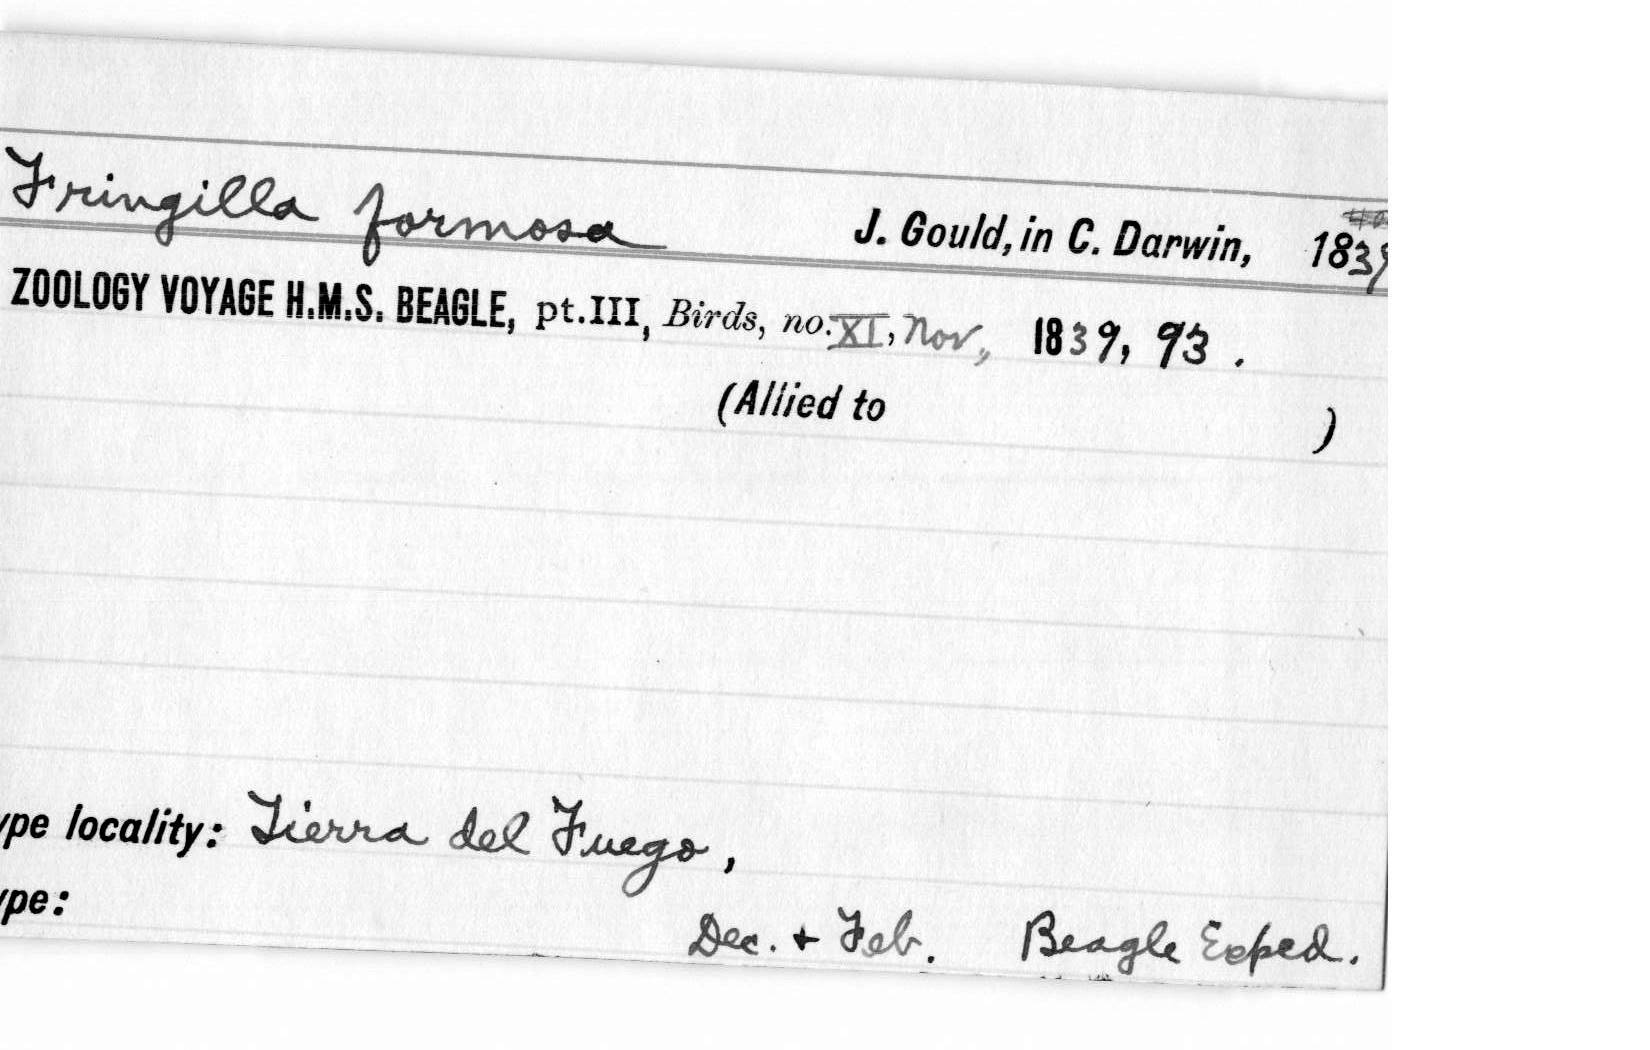 Fringilla formosa J. Gould, in C. Darwin, 1839
ZOOLOGY VOYAGE H.M.S. BEAGLE, pt.III, Birds, no. XI, Nov, 1839, 93.
(Allied to )
ype locality: Tierra del Fuego,
ype:
Dec. + Feb. Beagle Exped.